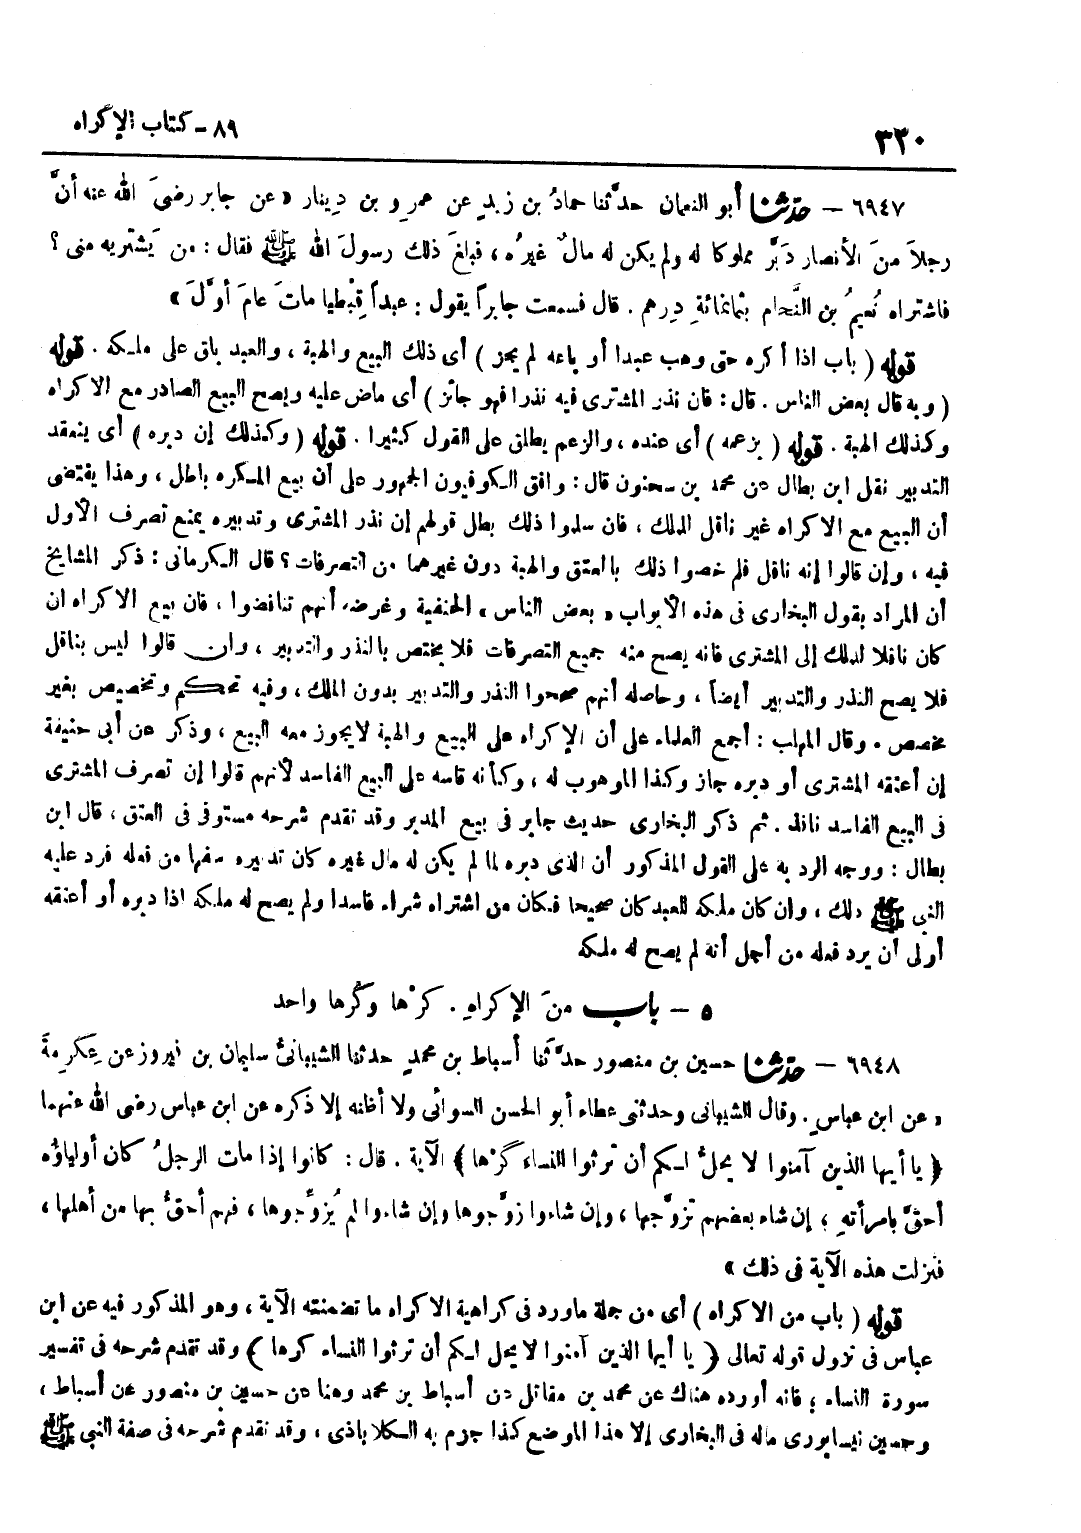 ٣٢٠
٨٩ - كتاب الإكراه
٦٩٤٧ - حدّثنا أبو النعمان حدَّثنا حمادُ بن زيدٍ عن عمرِو بن دِينار « عن جابر رضىَ الله عنه أنَّ
رجلاً منَ الأنصار دَبَّر مملوكا له ولم يكن له مالٌ غيرُه ، فبلغَ ذلك رسولَ الله ﷺ فقال : من يَشتريه منى ؟
فاشتراه نُعيمُ بن النَّحام بثمانمائةِ دِرهم . قال فسمعت جابراً يقول : عبداً قِبْطيا ماتَ عامَ أوَّلَ »
قوله ( باب اذا أكره حتى وهب عبدا أو باعه لم يجز ) أى ذلك البيع والهبة ، والعبد باق على ملكه . قوله
( وبه قال بعض الناس . قال : فان نذر المشترى فيه نذرا فهو جائز ) أى ماض عليه ويصح البيع الصادر مع الاكراه
وكذلك الهبة . قوله ( بزعمه ) أى عنده ، والزعم يطلق على القول كثيرا . قوله ( وكذلك إن دبره ) أى ينعقد
التدبير نقل ابن بطال عن محمد بن سحنون قال : وافق الكوفيون الجمهور على أن بيع المكره باطل ، وهذا يقتضى
أن البيع مع الاكراه غير ناقل الملك ، فان سلموا ذلك بطل قولهم إن نذر المشترى وتدبيره يمنع تصرف الأول
فيه ، وإن قالوا إنه ناقل فلم خصوا ذلك بالعتق والهبة دون غيرهما من التصرفات ؟ قال الكرمانى : ذكر المشايخ
أن المراد بقول البخارى فى هذه الأبواب « بعض الناس » الحنفية وغرضه أنهم تناقضوا ، فان بيع الاكراه ان
كان ناقلا لملك إلى المشترى فانه يصح منه جميع التصرفات فلا يختص بالنذر والتدبير ، وان قالوا ليس بناقل
فلا يصح النذر والتدبير أيضاً ، وحاصله أنهم صححوا النذر والتدبير بدون الملك ، وفيه تحكم وتخصيص بغير
مخصص . وقال المهلب : أجمع العلماء على أن الإكراه على البيع والهبة لا يجوز معه البيع ، وذكر عن أبى حنيفة
إن أعتقه المشترى أو دبره جاز وكذا الموهوب له ، وكأنه قاسه على البيع الفاسد لأنهم قالوا إن تصرف المشترى
فى البيع الفاسد نافذ . ثم ذكر البخارى حديث جابر فى بيع المدبر وقد تقدم شرحه مستوفى فى العتق ، قال ابن
بطال : ووجه الرد به على القول المذكور أن الذى دبره لما لم يكن له مال غيره كان تدبيره سفها من فعله فرد عليه
النبى ﷺ ذلك ، وان كان ملكه للعبد كان صحيحا فكان من اشتراه شراء فاسدا ولم يصح له ملكه اذا دبره أو أعتقه
أولى أن يرد فعله من أجل أنه لم يصح له ملكه
٥ - باب منَ الإكراهِ . كَرْها وكُرها واحد
٦٩٤٨ - حدّثنا حسين بن منصور حدَّثَنا أسباط بن محمدٍ حدثنا الشيبانىُّ سليمان بن فيروز عن عِكرِمةَ
« عن ابن عباسٍ . وقال الشيبانى وحدثنى عطاء أبو الحسن السوائى ولا أظنه إلا ذكره عن ابن عباس رضى الله عنهما
﴿ يا أيها الذين آمنوا لا يحلُّ لكم أن ترثوا النساء كَرْها ﴾ الآية . قال : كانوا إذا مات الرجلُ كان أولياؤُه
أحقَّ بامرأتهِ ؛ إن شاء بعضهم تزوَّجها ، وإن شاءوا زوَّجوها وإن شاءوا لم يُزوِّجوها ، فهم أحقُّ بها من أهلها ،
فنزلت هذه الآية فى ذلك »
قوله ( باب من الاكراه ) أى من جملة ماورد فى كراهية الاكراه ما تضمنته الآية ، وهو المذكور فيه عن ابن
عباس فى نزول قوله تعالى ﴿ يا أيها الذين آمنوا لا يحل لكم أن ترثوا النساء كرها ﴾ وقد تقدم شرحه فى تفسير
سورة النساء ؛ فانه أورده هناك عن محمد بن مقاتل عن أسباط بن محمد وهنا عن حسين بن منصور عن أسباط ،
وحسين نيسابورى ماله فى البخارى إلا هذا الموضع كذا جزم به الكلاباذى ، وقد تقدم شرحه فى صفة النبى ﷺ